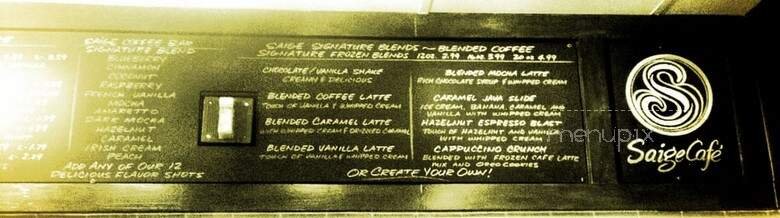 SAIGE COFFEE BAR
SIGNATURE BLEND
BLUEBERRY
CINNAMON
COCONUT
RASPBERRY
FRENCH VANILLA
MOCHA
AMARETTO
DARK MOCHA
HAZELNUT
CARAMEL
IRISH CREAM
PEACH
ADD ANY OF OUR 12
DELICIOUS FLAVOR SHOTS
SAIGE SIGNATURE BLENDS ~ BLENDED COFFEE
SIGNATURE FROZEN BLENDS 12oz 2.99 16oz 3.99 20oz 4.99
CHOCOLATE/VANILLA SHAKE
CREAMY & DELICIOUS
BLENDED COFFEE LATTE
TOUCH OF VANILLA & WHIPPED CREAM
BLENDED CARAMEL LATTE
WITH WHIPPED CREAM & DRIZZLED CARAMEL
BLENDED VANILLA LATTE
TOUCH OF VANILLA & WHIPPED CREAM
BLENDED MOCHA LATTE
RICH CHOCOLATE SYRUP & WHIPPED CREAM
CARAMEL JAVA SLIDE
ICE CREAM, BANANA CARAMEL AND
VANILLA WITH WHIPPED CREAM
HAZELNUT ESPRESSO BLAST
TOUCH OF HAZELNUT AND VANILLA
WITH WHIPPED CREAM
CAPPUCCINO CRUNCH
BLENDED WITH FROZEN CAFE LATTE
MIX AND OREO COOKIES
OR CREATE YOUR OWN!
Saige Café
menupix